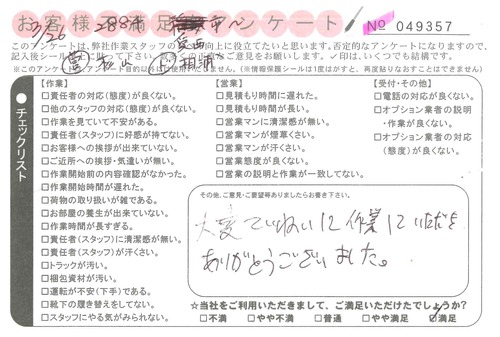 お客様 満足 アンケート
№ 049357
3/26
このアンケートは、弊社作業スタッフの 向上に役立てたいと思います。否定的なアンケートになりますので、
記入後シールに 貼って下さい。 ご意見をお願いします。✓印は、いくつでも結構です。
チェックリスト
【作業】
□責任者の対応(態度)が良くない。
□他のスタッフの対応(態度)が良くない。
□作業を見ていて不安がある。
□責任者(スタッフ)に好感が持てない。
□お客様への挨拶が出来ていない。
□ご近所への挨拶・気遣いが無い。
□作業開始前の内容確認がなかった。
□作業開始時間が遅れた。
□荷物の取り扱いが雑である。
□お部屋の養生が出来ていない。
□作業時間が長すぎる。
□責任者(スタッフ)に清潔感が無い。
□責任者(スタッフ)が汗くさい。
□トラックが汚い。
□梱包資材が汚い。
□運転が不安(下手)である。
□靴下の履き替えをしてない。
□スタッフにやる気がみられない。
【営業】
□見積もり時間に遅れた。
□見積もり時間が長い。
□営業マンに清潔感が無い。
□営業マンが煙草くさい。
□営業マンが汗くさい。
□営業態度が良くない。
□営業の説明と作業が一致してない。
【受付・その他】
□電話の対応が良くない。
□オプション業者の説明
・作業が良くない。
□オプション業者の対応
(態度)が良くない。
その他、ご意見・ご要望等ありましたらお書き下さい。
大変ていねいに作業していただき
ありがとうございました。
☆当社をご利用いただきまして、ご満足いただけたでしょうか?
□不満 □やや不満 □普通 □やや満足 ☑満足